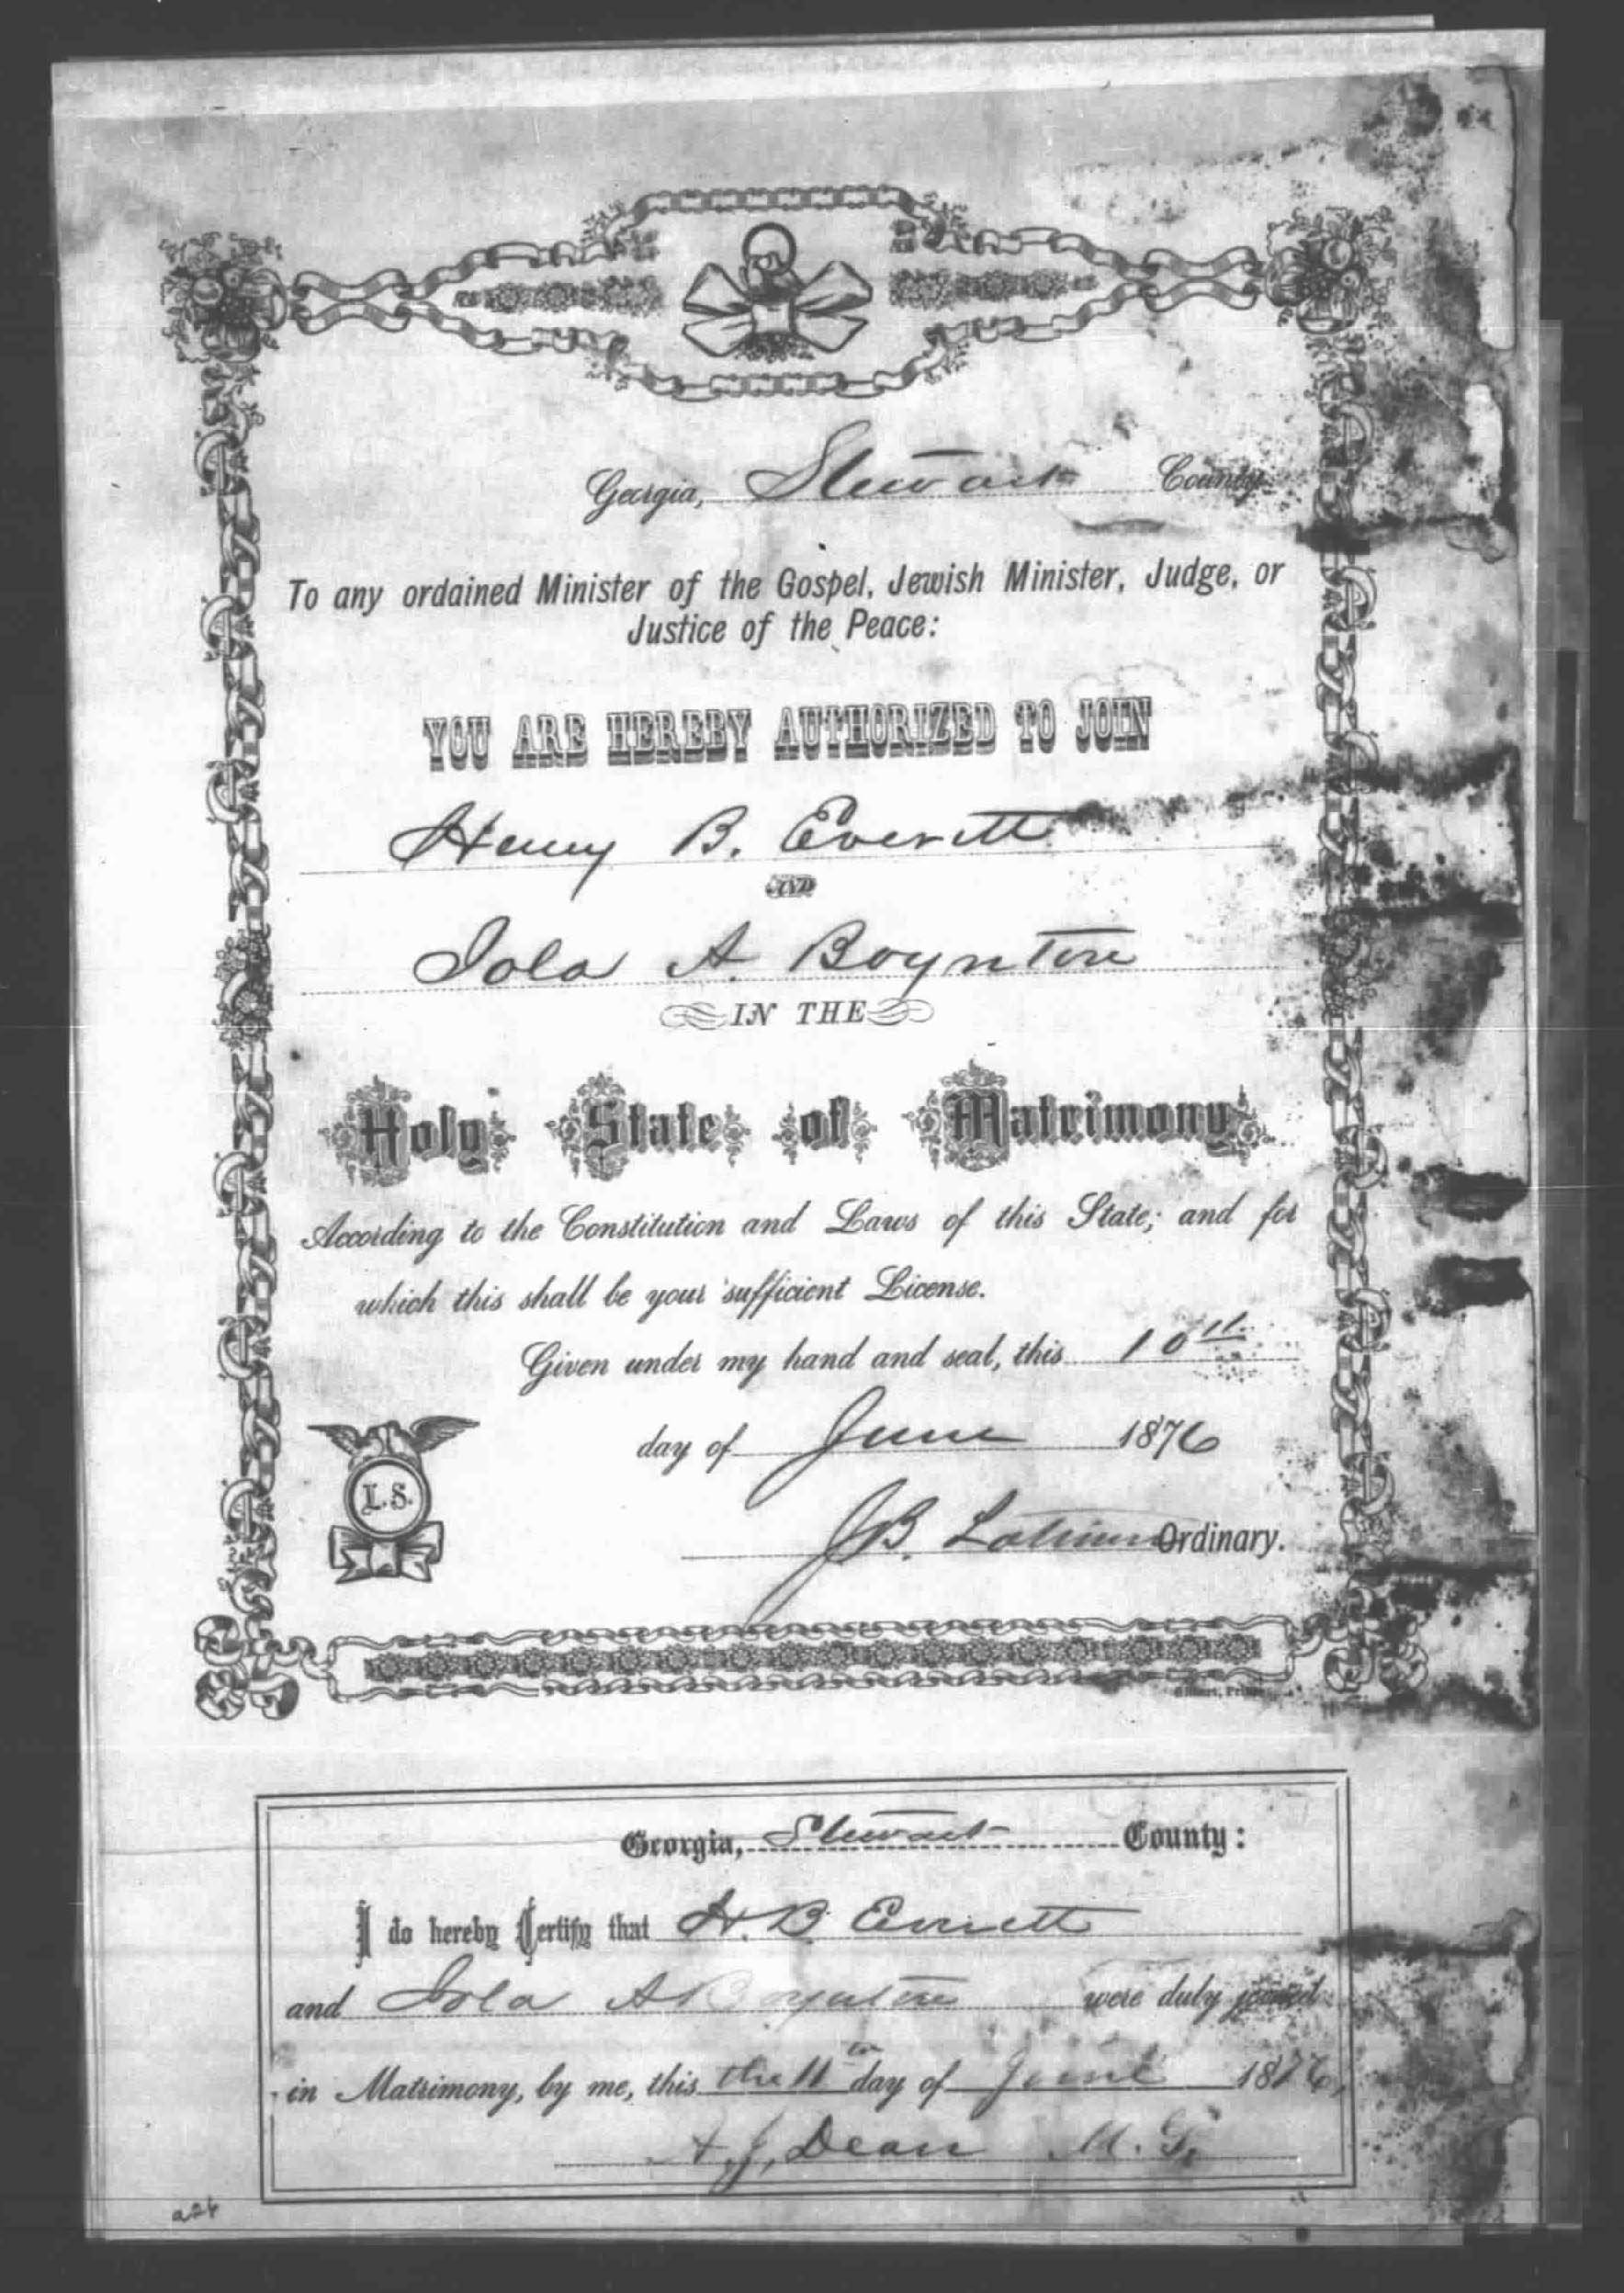 Georgia, Stewart County
To any ordained Minister of the Gospel, Jewish Minister, Judge, or
Justice of the Peace:
YOU ARE HEREBY AUTHORIZED TO JOIN
Henry B. Everett
AND
Iola A. Boynton
IN THE
Holy State of Matrimony
According to the Constitution and Laws of this State; and for
which this shall be your sufficient License.
Given under my hand and seal, this 10th
day of June 1876
L.S.
J.B. Latimer Ordinary.
Georgia, Stewart County:
I do hereby Certify that H. B. Everett
and Iola A Boynton were duly joined
in Matrimony, by me, this the 11th day of June 1876,
J, Dean M. G,